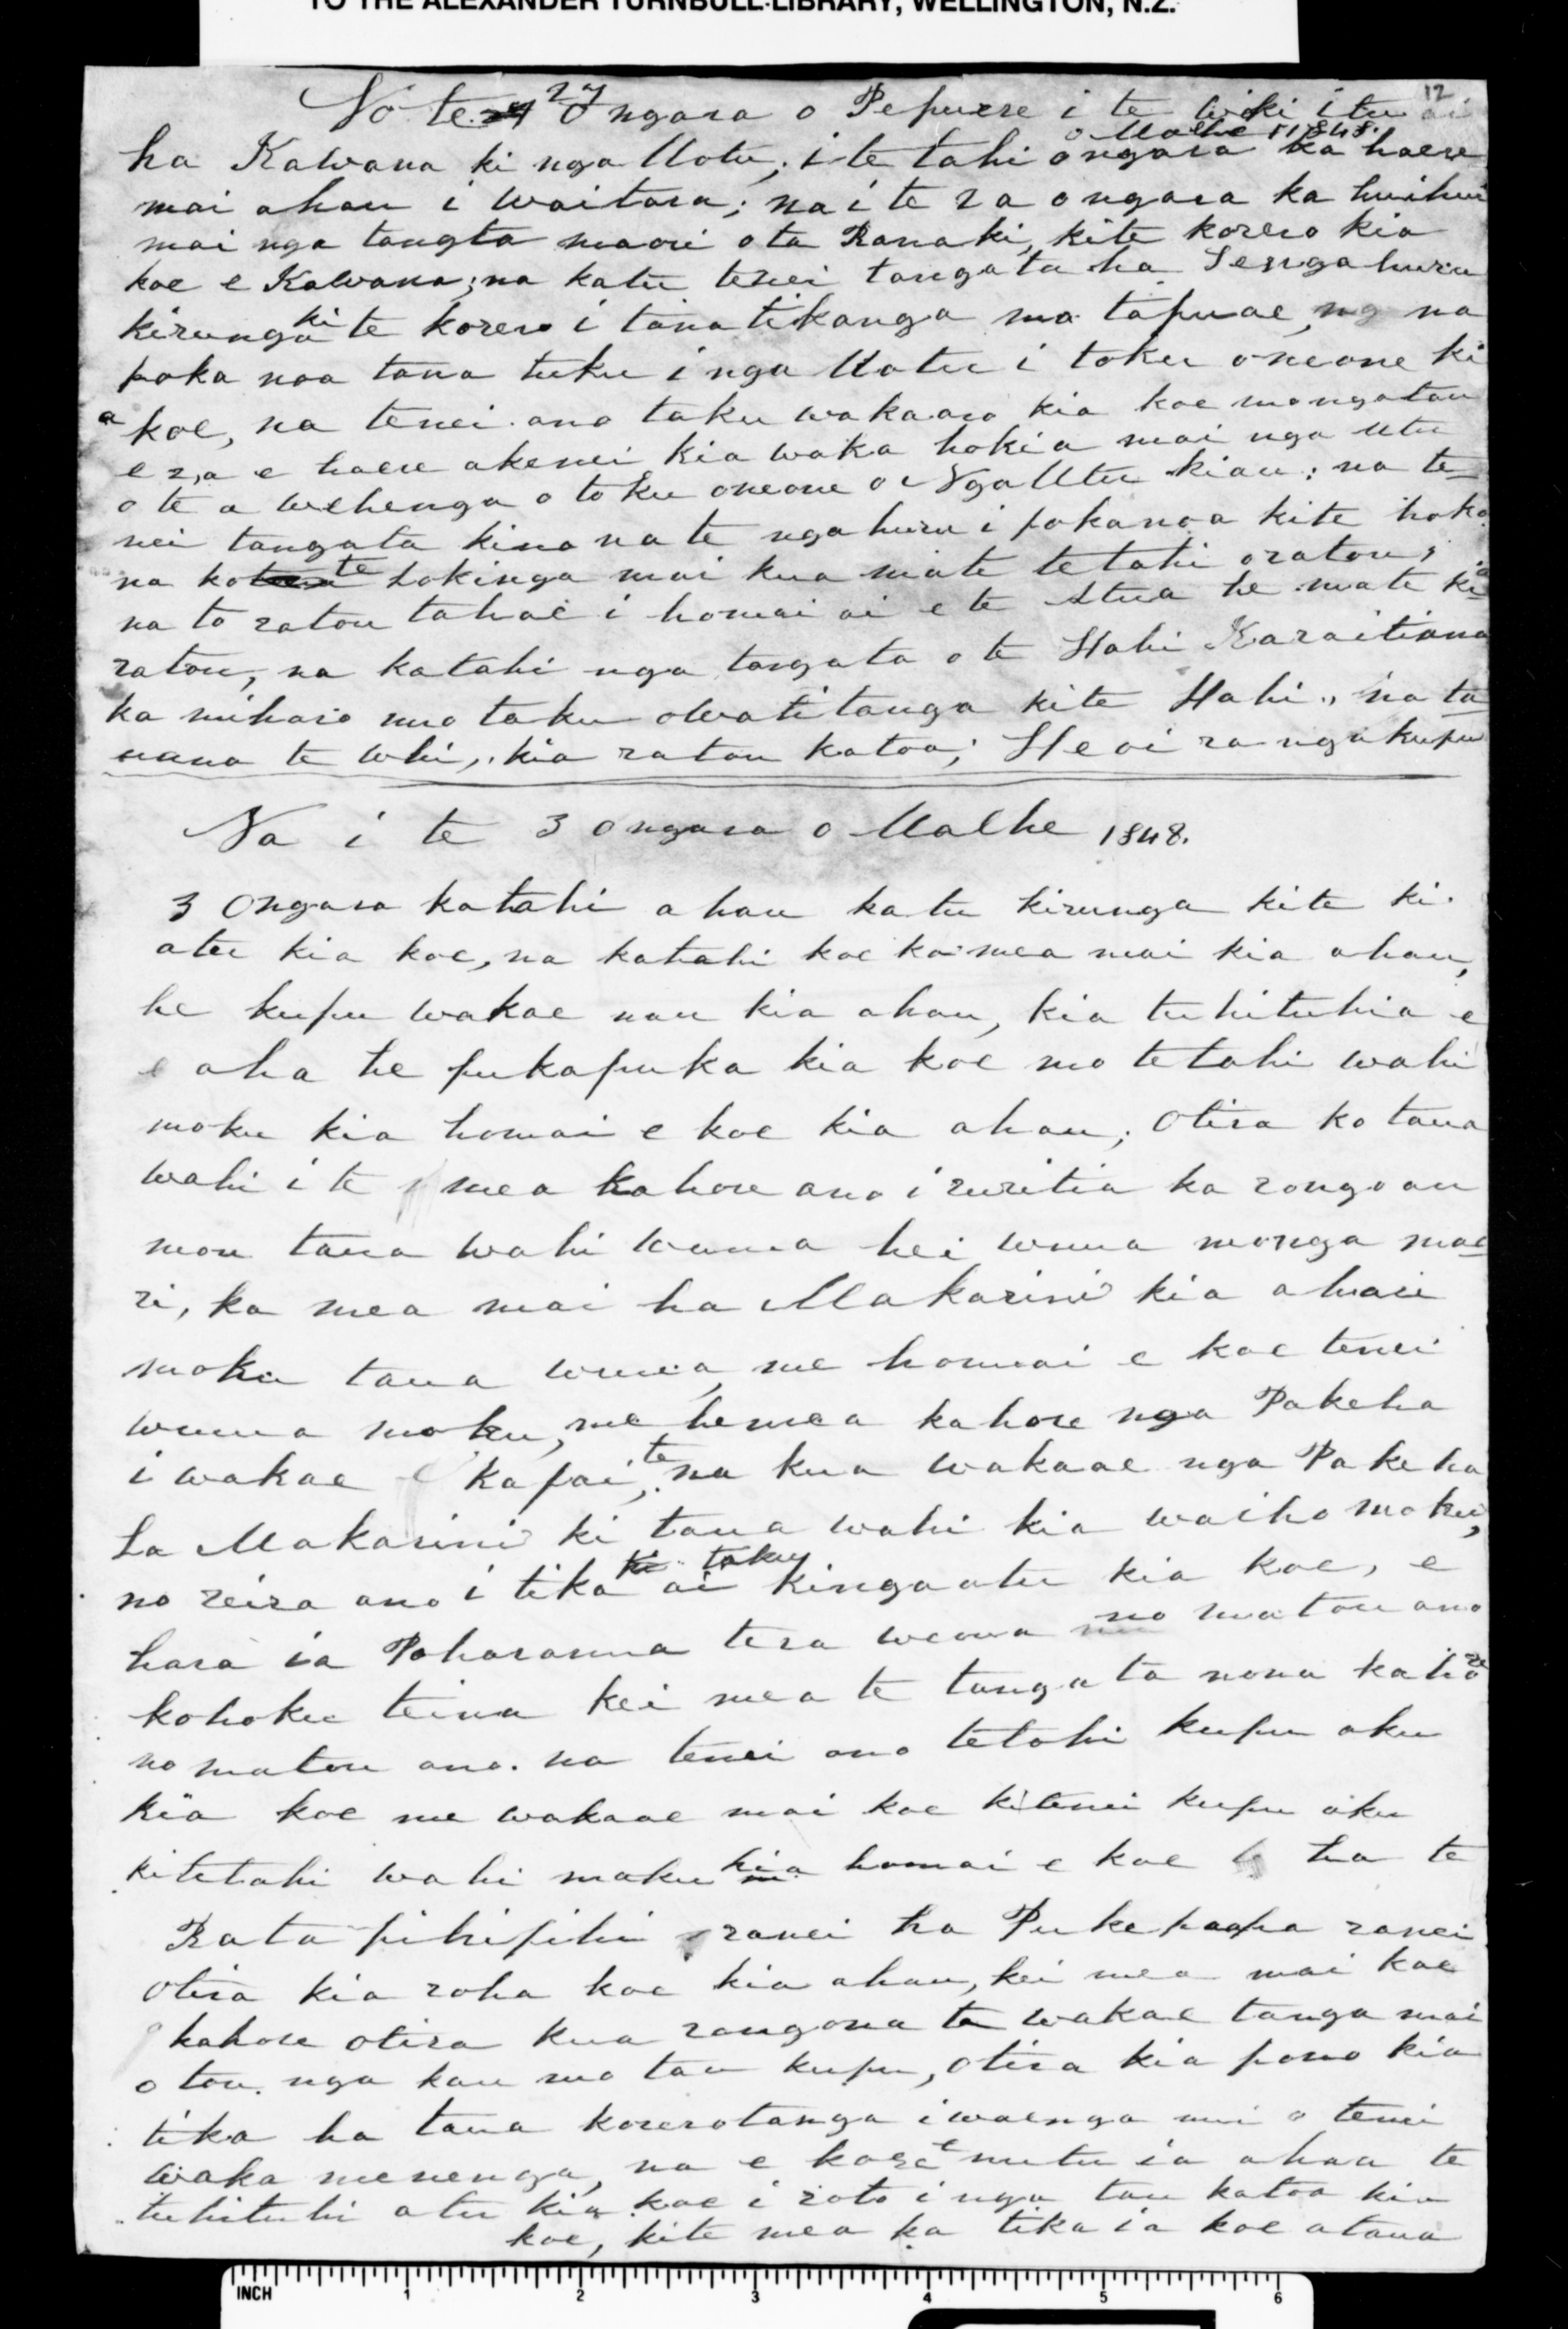 TO THE ALEXANDER TURNBULL LIBRARY, WELLINGTON, N.Z.
12
No te 27 O ngara o Pepuere i te wiki i tu ai
o Maehe 1 1848.
ha Kawana ki nga Motu, i te tahi o ngara ka haere
mai ahau i Waitara; na i te ra o ngara ka huihui
mai nga tangta maori o ta Ranaki, kite korero kia
koe e Kawana; na katu tenei tangata ha Te ngahuru
kirunga ki te korero i tana tikanga ma tapuae, na
poka noa tana tuku i nga Motu i toku oneone ki
a koe, na tenei ano taku wakaaro kia koe mo nga tau
e ra e haere akenei kia waka hokia mai nga utu
o te a wehenga o toku oneone o Nga Utu kiau: na te
nei tangata kino na te ngahuru i pokanoa kite hoko
na ko te hokinga mai kua mate tetahi o ratou;
na to ratou tahae i homai ai e te Atua he mate kia
ratou, na katahi nga tangata o te Hahi Karaitiana
ka miharo mo taku owatitanga kite Hahi, na ta
uana te whi, kia ratou katoa; Heoi ra nga kupu
Na i te 3 o ngara o Maehe 1848.
3 Ongara katahi ahau ka tu kirunga kite ki
atu kia koe, na katahi koe ka mea mai kia ahau,
he kupu wakae nau kia ahau, kia tuhituhia e
e aha he pukapuka kia koe mo tetahi wahi
moku kia homai e koe kia ahau; Otira ko taua
wahi i te mea kahore ano i ruritia ka rongo au
mou taua wahi wenua hei wenua mo nga mao
ri, ka mea mai ha Makarini kia ahau
moku taua wenua, me homai e koe tenei
wenua moku, me hemea kahore nga Pakeha
i wakae kapai, te na kua wakaae nga Pakeha
ha Makarini ki taua wahi kia waiho moku,
no reira ano i tika ai taku kingaatu kia koe, e
hara ia Poharama tera wenua no matou ano
ko hoku teina kei mea te tangata nona kahore
no matou ano. na tenei ano tetahi kupu aku
kia koe me wakaae mai koe kitenei kupu aku
kitetahi wahi maku kia homai e koe ha te
Rata pihipihi ranei ha Pukehapha ranei
Otira kia roha koe kia ahau, kei mea mai koe
kahore otira kua rangona te wakae tanga mai
o tou nga kau mo tau kupu, otira kia pono kia
tika ha taua korerotanga i waenga nui o tenei
waka menenga, na e kore e mutu ia ahau te
tuhituhi atu kia koe i roto i nga tau katoa kia
koe, kite mea ka tika ia koe ataua
INCH 1 2 3 4 5 6